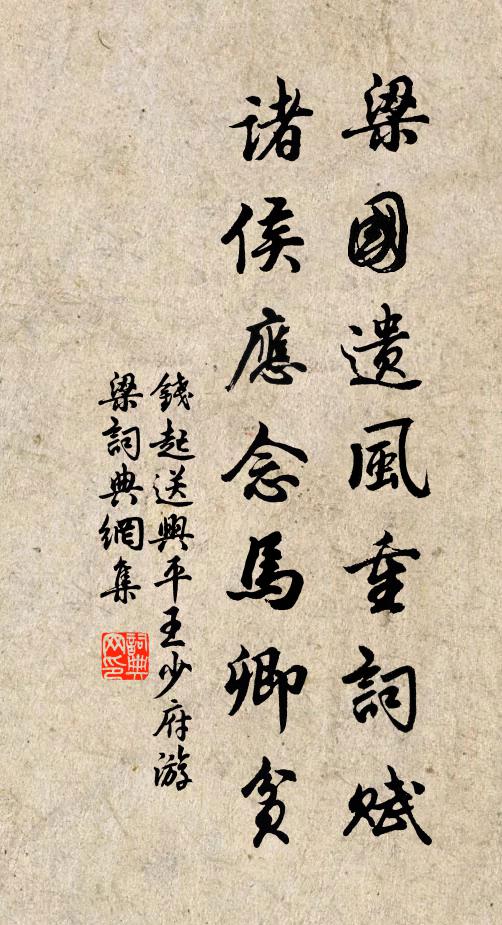 梁國遺風重詞賦
諸侯應念馬卿貧
錢起送興平王少府游
梁詞典網集
詞典
网印